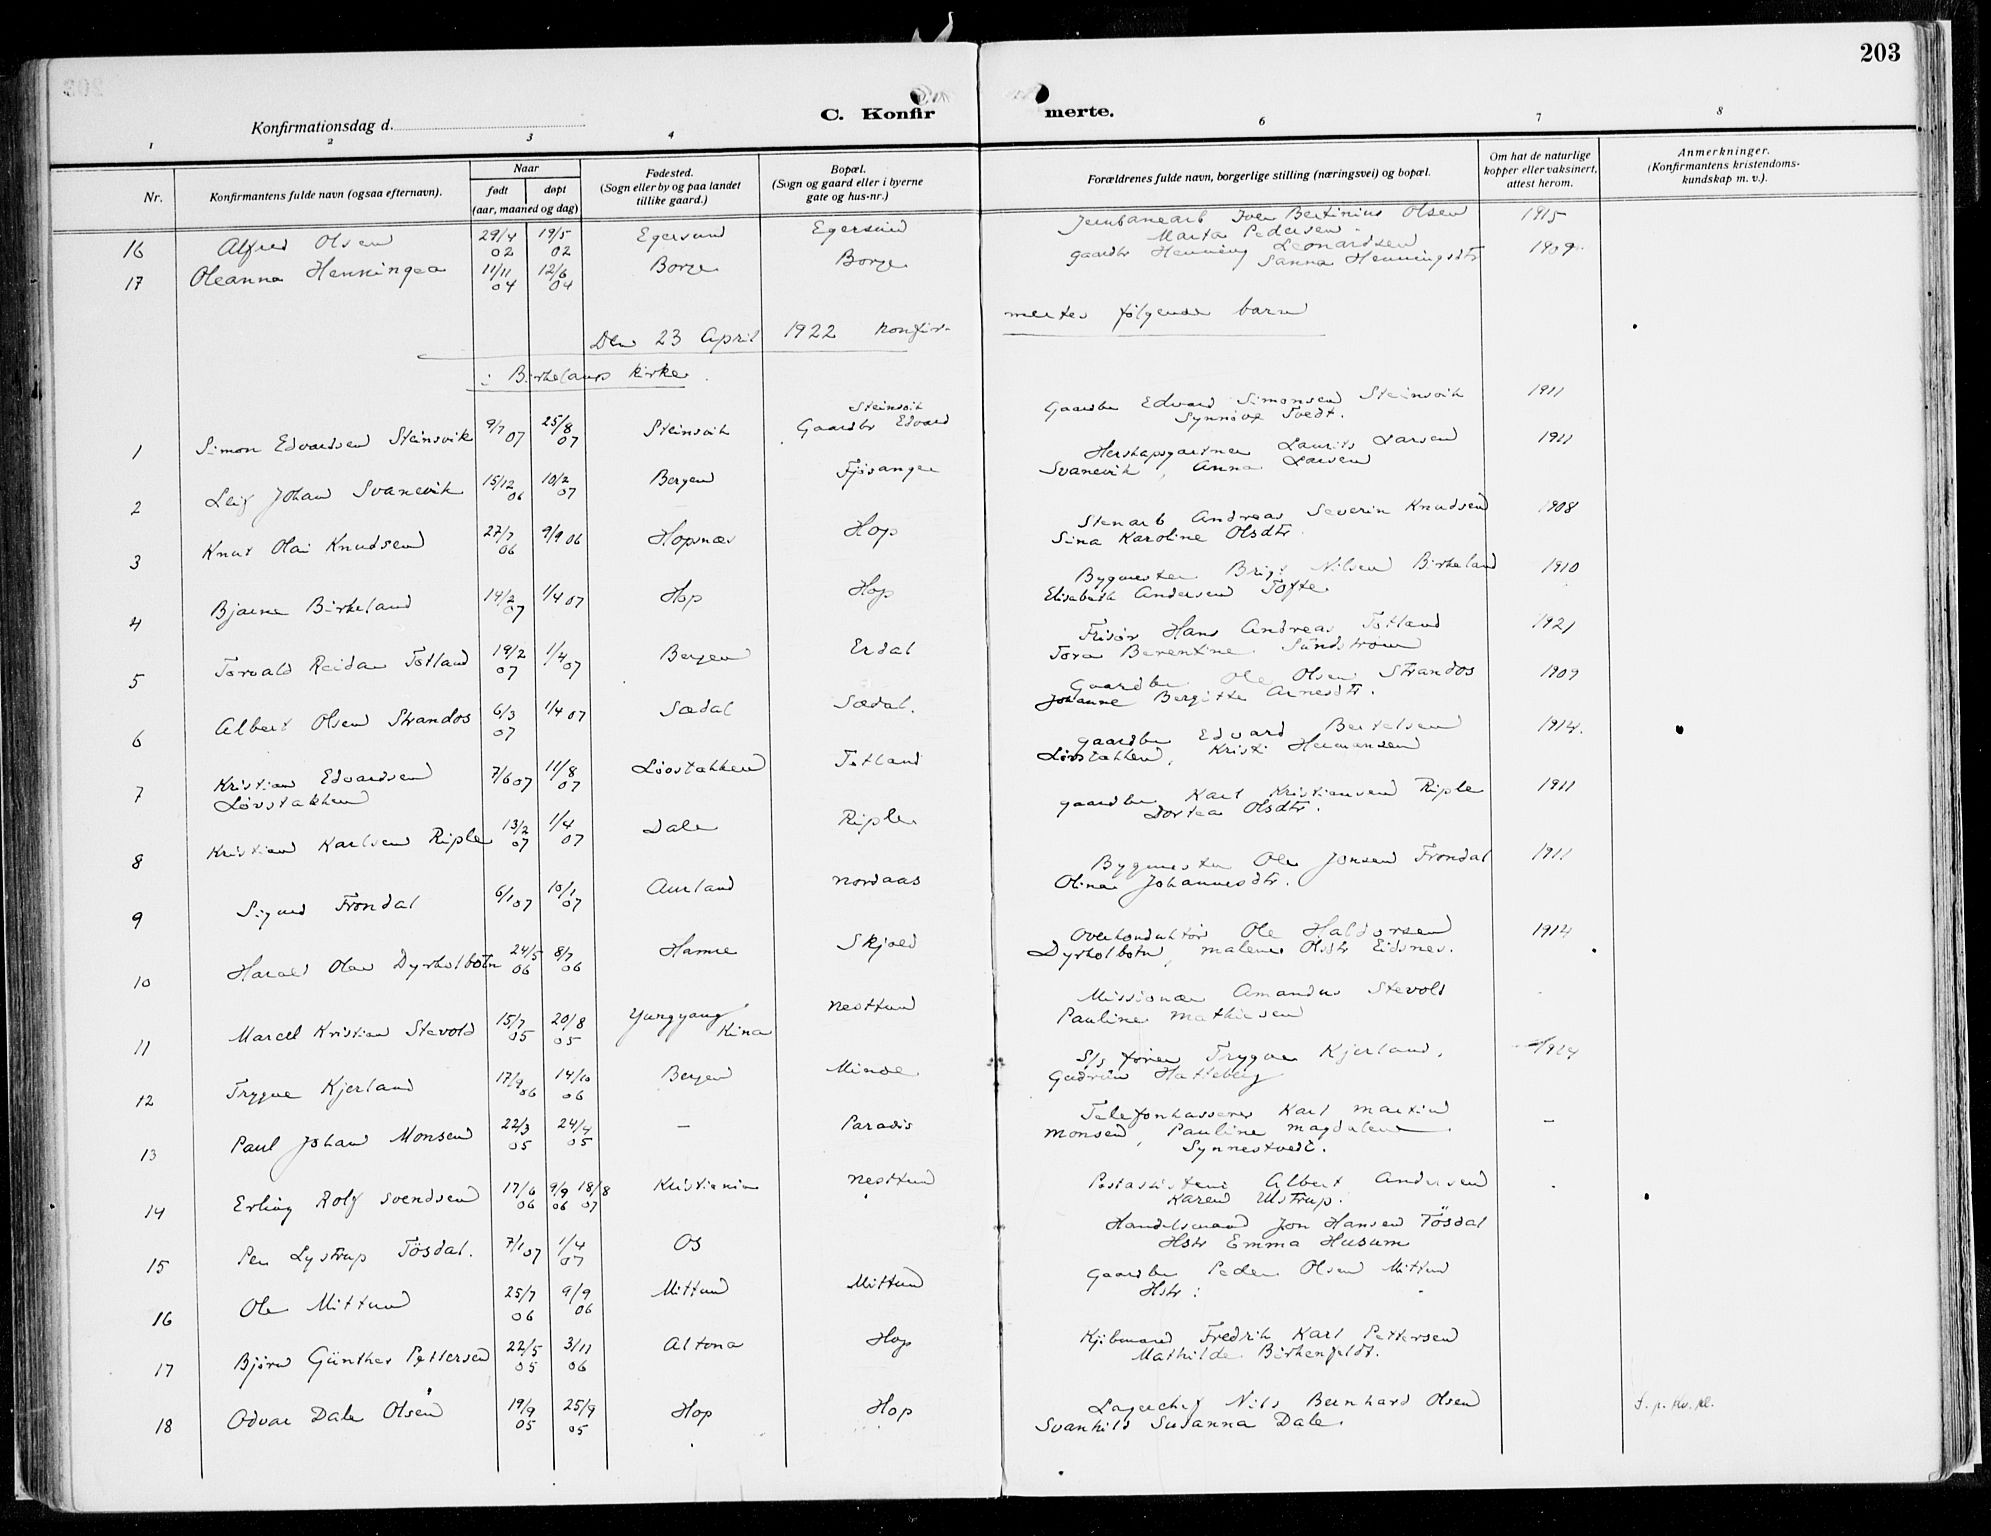 203
C. Konfirmerte.
Konfirmationsdag d.
1 2 3 4 6 7 8
Nr.
Konfirmantens fulde navn (ogsaa efternavn).
Naar
født døpt
(aar, maaned og dag)
Fødested.
(Sogn eller by og paa landet
tillike gaard.)
Bopæl.
(Sogn og gaard eller i byerne
gate og hus-nr.)
Forældrenes fulde navn, borgerlige stilling (næringsvei) og bopæl.
Om hat de naturlige
kopper eller vaksinert,
attest herom.
Anmerkninger.
(Konfirmantens kristendoms-
kundskap m. v.).
16 Alfred Olsen 29/4 02 19/5 02 Egersund Egersund Jernbanearb Iver Bertinius Olsen 1915
Marta Pedersen
17 Oleanna Henningea 11/11 04 12/6 04 Borge Borge gaardbr Henning Leonardsen 1909
Sanna Henningsdtr
Den 23 April 1922 konfir- mertes følgende barn
i Birkelands kirke
1 Simon Edvardsen Steinsvik 9/7 07 25/8 07 Steinsvik Steinsvik Gaardbr Edvard Gaardbr Edvard Simonsen Steinsvik 1911
Synnøve Tvedt.
2 Leif Johan Svanevik 15/12 06 10/2 07 Bergen Fjøsanger Herskapsgartner Laurits Larsen 1911
Svanevik, Anna Larsen
3 Knut Olai Knudsen 27/7 06 9/9 06 Hopsnes Hop Stenarb Andreas Severin Knudsen 1908
Sina Karoline Olsdtr.
4 Bjarne Birkeland 14/2 07 1/4 07 Hop Hop Bygmester Brigt Nilsen Birkeland 1910
Elisabeth Andersen Tofte
5 Torvald Reidar Totland 19/2 07 1/4 07 Bergen Erdal Frisør Hans Andreas Totland 1921
Tora Berentine Sundstrøm
6 Albert Olsen Strandos 6/3 07 1/4 07 Sædal Sædal. Gaardbr Ole Olsen Strandos 1909
Johanne Bergitte Arnesdtr.
7 Kristian Edvardsen 7/6 07 11/8 07 Løvstakken Totland gaardbr Edvard Bertelsen 1914.
Løvstakken Løvstakken, Kristi Hermansen
8 Kristian Karlsen Riple 13/2 07 1/4 07 Dale Riple gaardbr Karl Kristiansen Riple 1911
Dortea Olsdtr.
9 Sigurd Frondal 6/1 07 10/1 07 Aurland Nordaas Bygmester Ole Jonsen Frondal 1911
Olina Johannesdtr.
10 Harald Olav Dyrkolbotn 24/5 06 8/7 06 Hamre Skjold Overkonduktør Ole Haldorsen 1914
Dyrkolbotn, Malene Olsdtr Eidsnes.
11 Marcel Kristian Stevold 15/7 05 20/8 05 Yungyang Kina Nesttun Missionær Amandus Stevold
Pauline Mathiesen
12 Trygve Kjerland 17/9 06 14/10 06 Bergen Minde S/s fører Trygve Kjerland,
Gudrun Hatteberg
13 Paul Johan Monsen 22/3 05 24/4 05 — Paradis Telefonkasserer Karl Martin —
Monsen, Pauline Magdalene
Synnestvedt.
14 Erling Rolf Svendsen 17/6 06 9/9 06 18/8 07 Kristiania Nesttun Postassistent Albert Andersen
Karen Ulstrup.
15 Per Lystrup Tösdal. 7/1 07 1/4 07 Os Handelsmand Jon Hansen Tösdal
Hstr Emma Husum
16 Ole Mittun 25/7 06 9/9 06 Mittun Mittun Gaardbr Peder Olsen Mittun
Hstr:
17 Bjørn Günther Pettersen 22/5 05 3/11 06 Altona Hop Kjøbmand Fredrik Karl Pettersen
Mathilde Birkenfeldt.
18 Odvar Dale Olsen 19/9 05 25/9 05 Hop Hop Lagerchef Nils Bernhard Olsen
Svanhild Susanna Dale.